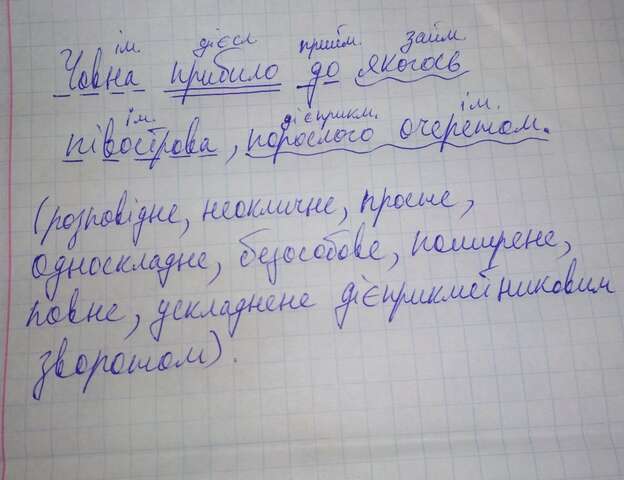 ім. дієсл прийм. займ.
Човна прибило до якогось
ім. дієприкм. ім.
півострова, порослого очеретом.
(розповідне, неокличне, просте,
односкладне, безособове, поширене,
повне, ускладнене дієприкметниковим
зворотом).